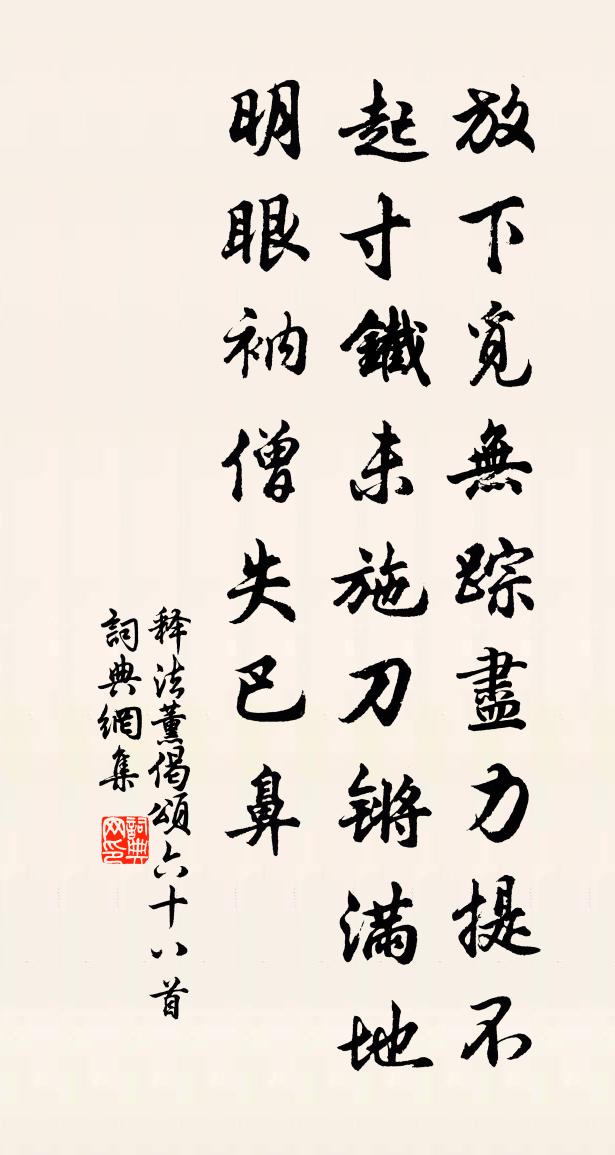 放下覓無踪盡力提不
起寸鐵未施刀鏘滿地
明眼衲僧失巴鼻
释法薰偈頌六十八首
詞典網集
詞典網印